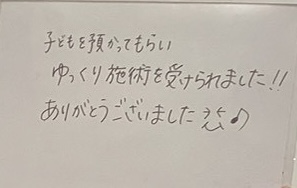 子どもを預かってもらい
ゆっくり施術を受けられました!!
ありがとうございました♪